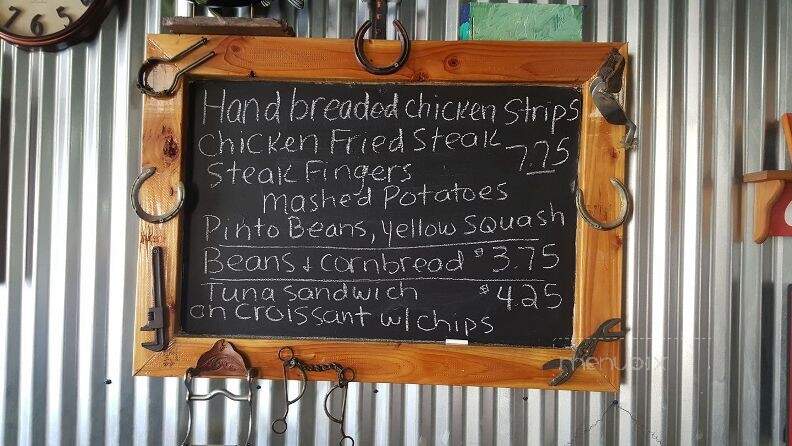 7 6 5
Hand breaded chicken Strips
Chicken Fried Steak
7.75
Steak Fingers
mashed Potatoes
Pinto Beans, yellow squash
Beans & cornbread $3.75
Tuna sandwich $4.25
on croissant w/ chips
menupix